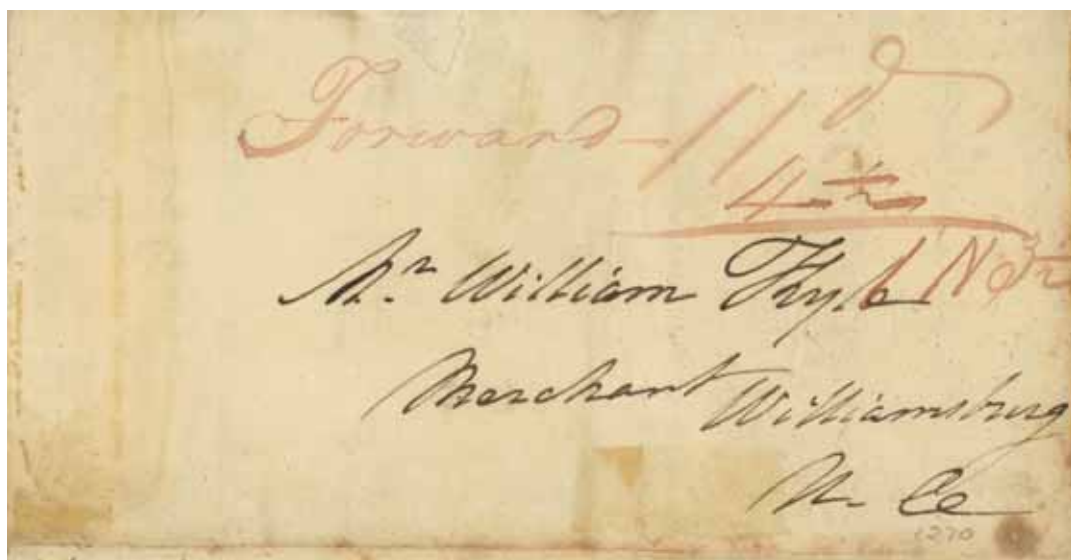 Forward - 11 d
4
Mr. William Kyle
Merchant Williamsburg
U. Ce
1270